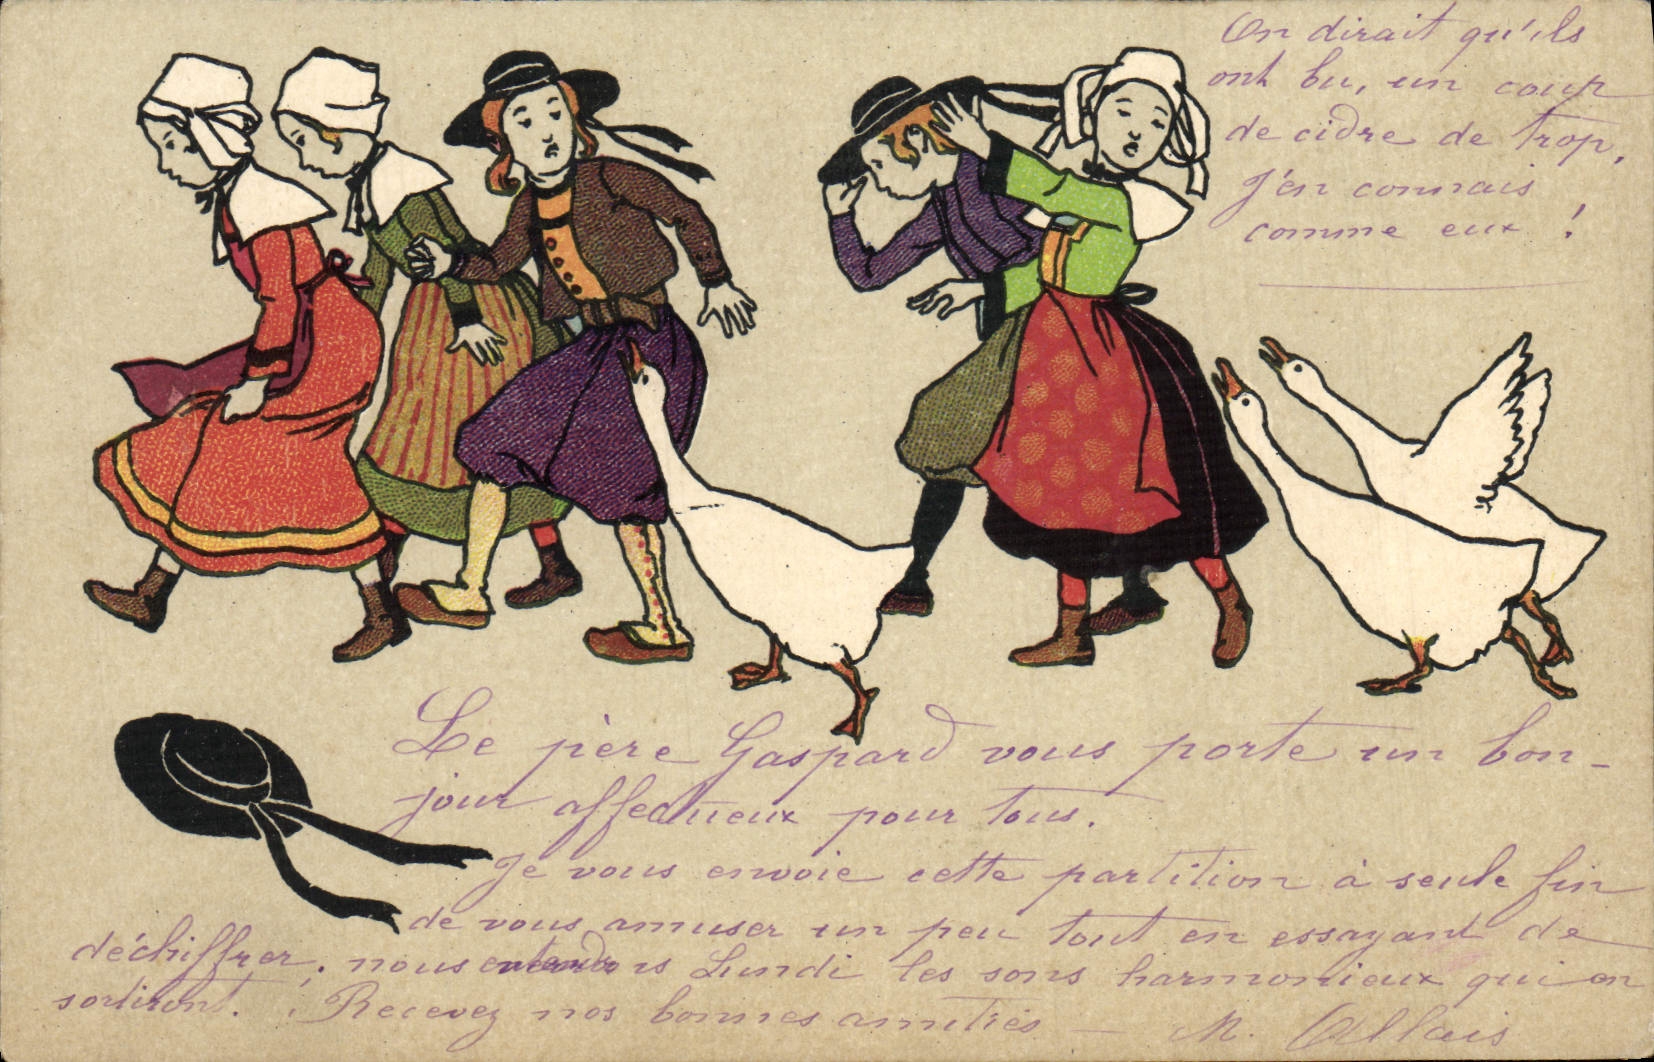 On dirait qu'ils
ont bu, un coup
de cidre de trop,
J'en connais
comme eux !
Le père Gaspard vous porte un bon-
jour affectueux pour tous.
Je vous envoie cette partition à seule fin
de vous amuser un peu tout en essayant de
déchiffrer, nous entendrons Lundi les sons harmonieux qui en
sortiront. Recevez nos bonnes amitiés — M. Allais